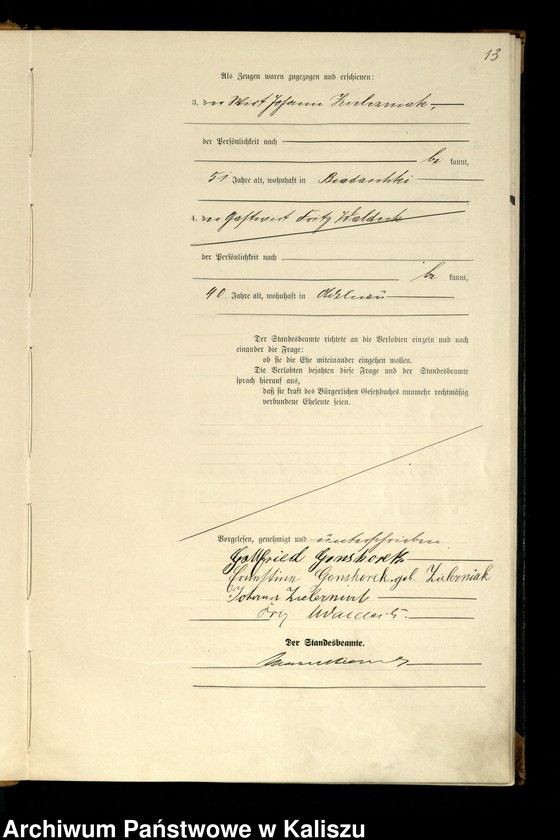 13
Als Zeugen waren zugezogen und erschienen:
3. der Wirt Johann Zulerniak,
der Persönlichkeit nach
be kannt,
51 Jahre alt, wohnhaft in
4. der Gastwirt Fritz Waldeck
der Persönlichkeit nach
be kannt,
40 Jahre alt, wohnhaft in Adelnau
Der Standesbeamte richtete an die Verlobten einzeln und nach
einander die Frage:
ob sie die Ehe miteinander eingehen wollen.
Die Verlobten bejahten diese Frage und der Standesbeamte
sprach hierauf aus,
daß sie kraft des Bürgerlichen Gesetzbuches nunmehr rechtmäßig
verbundene Eheleute seien.
Vorgelesen, genehmigt und unterschrieben
Gottfried Gonshorek
Ernestine Gonshorek, geb. Zulerniak
Johann Zulerniak
Fritz Waldeck.
Der Standesbeamte.
Archiwum Państwowe w Kaliszu